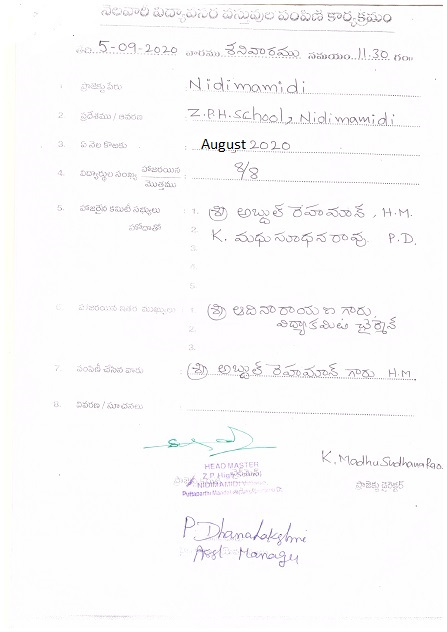 నెలవారి విద్యావసర వస్తువుల పంపిణి కార్యక్రమం
5-09-2020 వారము శనివారము సమయం 11.30 గం
1. ప్రాజెక్టు పేరు : Nidimamidi
2. ప్రదేశము / ఆవరణ : Z.P.H.School, Nidimamidi
3. ఏ నెల కొఱకు : August 2020
4. విద్యార్థుల సంఖ్య హాజరయిన / మొత్తము : 8/8
5. హాజరైన కమిటీ సభ్యులు : 1. శ్రీ అబ్దుల్ రెహామాన్, H.M.
హోదాతో 2. K. మధుసూధనరావు P.D.
3.
4.
5.
6. హాజరయిన ఇతర ముఖ్యులు : 1. శ్రీ ఆదినారాయణ గారు.
2. విద్యాకమిటి ఛైర్మెన్
3.
7. పంపిణీ చేసిన వారు : శ్రీ అబ్దుల్ రెహామాన్ గారు H.M.
8. వివరణ / సూచనలు :
K. Madhu Sudhana Rao.
HEAD MASTER
Z.P. High
NIDIMAMIDI
ప్రాజెక్టు డైరెక్టర్
P Dhanalakshmi
Asst Manager